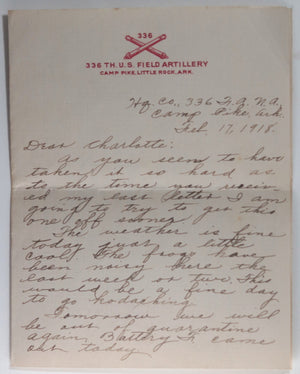 336
336 TH. U.S. FIELD ARTILLERY
CAMP PIKE, LITTLE ROCK, ARK.
Hq. Co., 336 F.A. N.A.
Camp Pike, Ark.
Feb. 17, 1918.
Dear Charlotte:
As you seem to have
taken it so hard as
to the time you receiv-
ed my last letter I am
going to try to get this
one off sooner.
The weather is fine
today just a little
cool. The frogs have
been noisy here the
last week or two. This
would be a fine day
to go kodaking.
Tomorrow we will
be out of quarantine
again. Battery F. came
out today